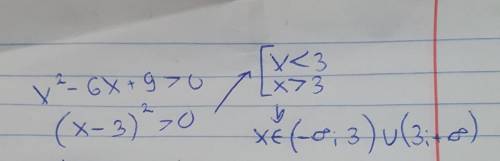 x² - 6x + 9 > 0
(x - 3)² > 0
[x < 3
x > 3
x ∈ (-∞; 3) ∪ (3; +∞)